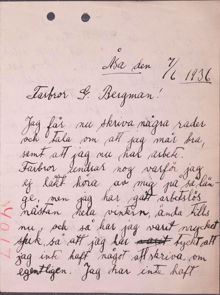 Åsa den 7/6 1936
Farbror G. Bergman!
Jag får nu skriva några rader
och tala om att jag mår bra,
samt att jag nu har arbete.
Farbror undrar nog varför jag
ej låtit höra av mig på så län-
ge, men jag har gått arbetslös
nästan hela vintern, ända tills
nu, och så har jag varit mycket
sjuk, så att jag har tyckt att
jag inte haft något att skriva om
egentligen. Jag har inte haft